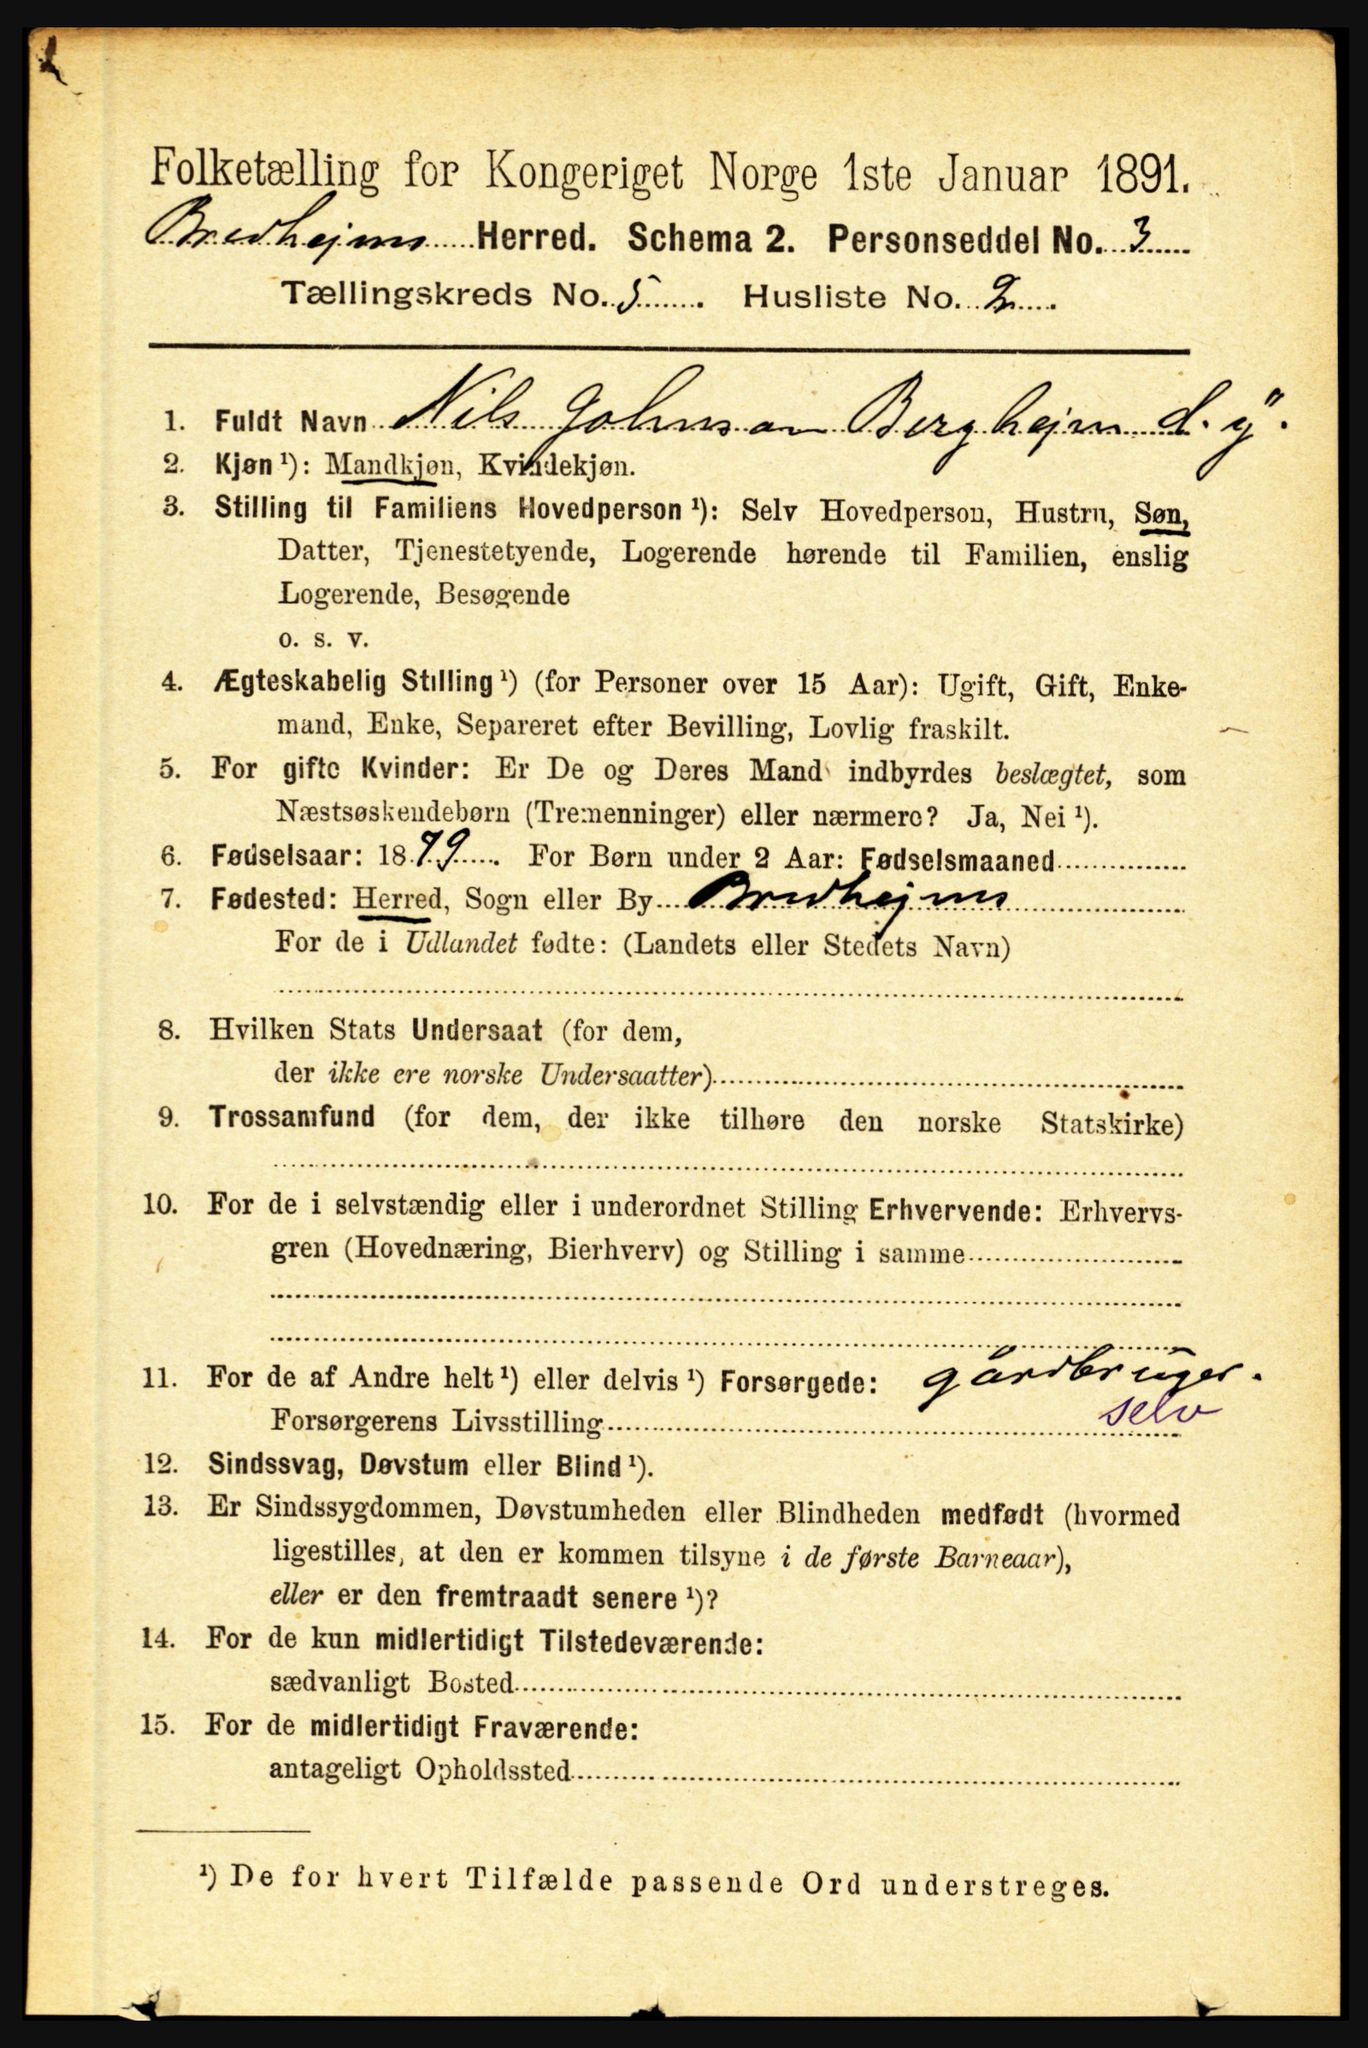 Folketælling for Kongeriget Norge 1ste Januar 1891.
Bredhejms Herred. Schema 2. Personseddel No. 3
Tællingskreds No. 5. Husliste No. 2.
1. Fuldt Navn Nils Johnson Berghejm d. y".
2. Kjøn ¹): Mandkjøn, Kvindekjøn.
3. Stilling til Familiens Hovedperson ¹): Selv Hovedperson, Hustru, Søn,
Datter, Tjenestetyende, Logerende hørende til Familien, enslig
Logerende, Besøgende
o. s. v.
4. Ægteskabelig Stilling ¹) (for Personer over 15 Aar): Ugift, Gift, Enke-
mand, Enke, Separeret efter Bevilling, Lovlig fraskilt.
5. For gifte Kvinder: Er De og Deres Mand indbyrdes beslægtet, som
Næstsøskendebørn (Tremenninger) eller nærmere? Ja, Nei ¹).
6. Fødselsaar: 1879. For Børn under 2 Aar: Fødselsmaaned
7. Fødested: Herred, Sogn eller By Bredhejms
For de i Udlandet fødte: (Landets eller Stedets Navn)
8. Hvilken Stats Undersaat (for dem,
der ikke ere norske Undersaatter)
9. Trossamfund (for dem, der ikke tilhøre den norske Statskirke)
10. For de i selvstændig eller i underordnet Stilling Erhvervende: Erhvervs-
gren (Hovednæring, Bierhverv) og Stilling i samme
11. For de af Andre helt ¹) eller delvis ¹) Forsørgede: gårdbruger.
Forsørgerens Livsstilling selv
12. Sindssvag, Døvstum eller Blind ¹).
13. Er Sindssygdommen, Døvstumheden eller Blindheden medfødt (hvormed
ligestilles, at den er kommen tilsyne i de første Barneaar),
eller er den fremtraadt senere ¹)?
14. For de kun midlertidigt Tilstedeværende:
sædvanligt Bosted
15. For de midlertidigt Fraværende:
antageligt Opholdssted
¹) De for hvert Tilfælde passende Ord understreges.